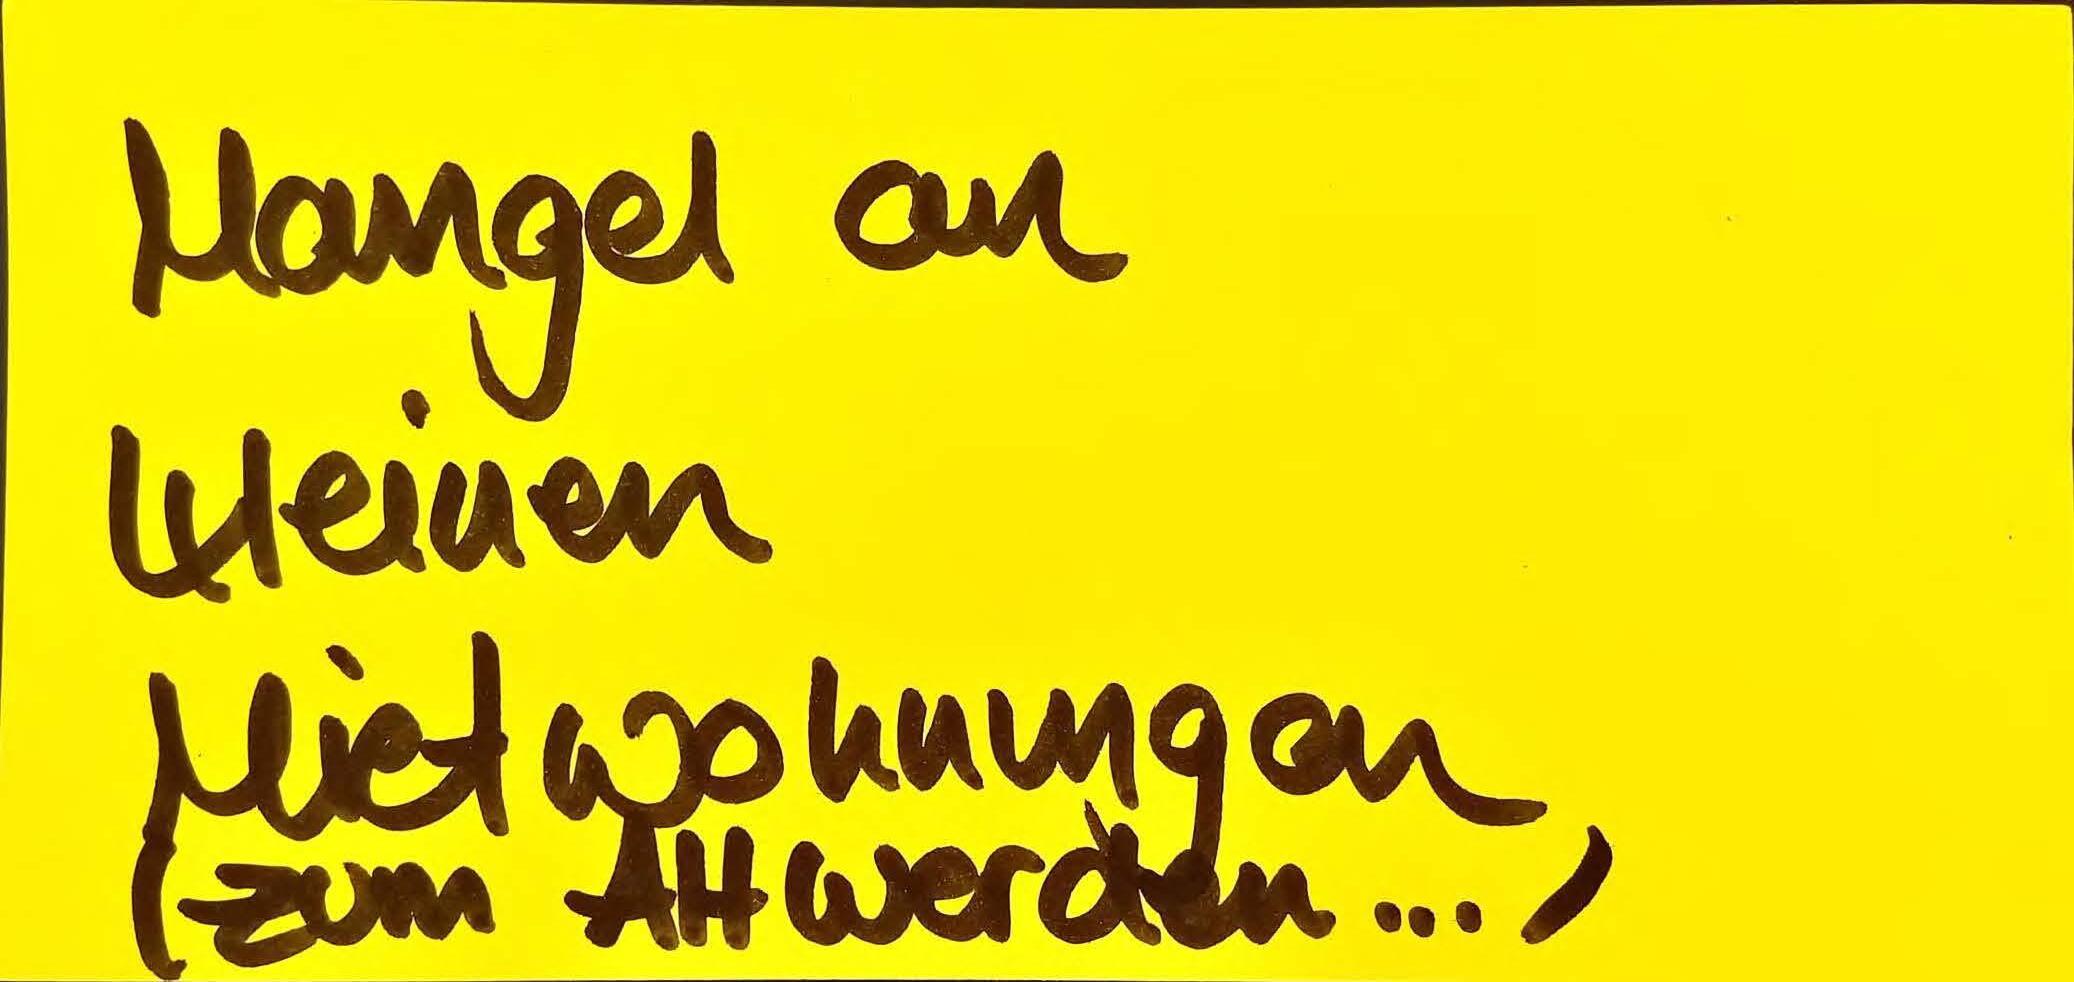 Mangel an
kleinen
Mietwohnungen
(zum Altwerden...)